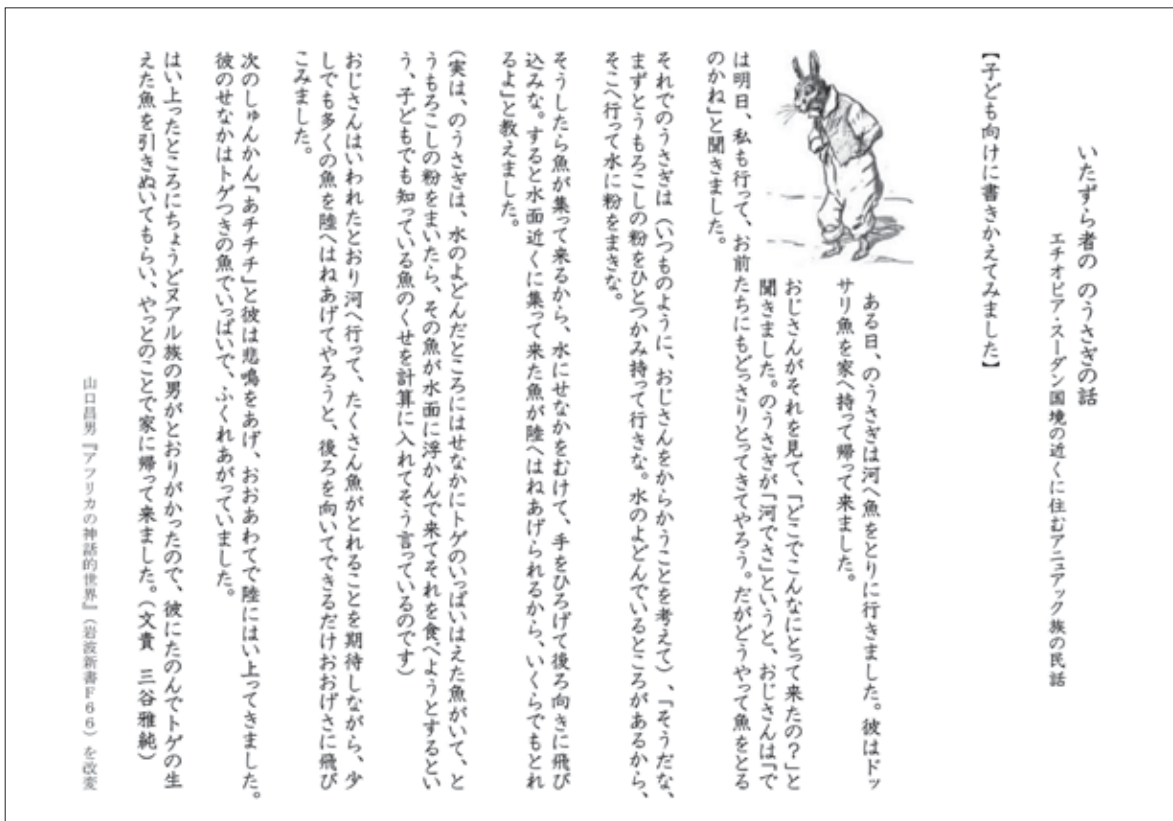 いたずら者の のうさぎの話
エチオピア・スーダン国境の近くに住むアニュアック族の民話
【子ども向けに書きかえてみました】
ある日、のうさぎは河へ魚をとりに行きました。彼はドッ
サリ魚を家へ持って帰って来ました。
おじさんがそれを見て、「どこでこんなにとって来たの?」と
聞きました。のうさぎが「河でさ」というと、おじさんは「で
は明日、私も行って、お前たちにもどっさりとってきてやろう。だがどうやって魚をとる
のかね」と聞きました。
それでのうさぎは(いつものように、おじさんをからかうことを考えて)、「そうだな、
まずとうもろこしの粉をひとつかみ持って行きな。水のよどんでいるところがあるから、
そこへ行って水に粉をまきな。
そうしたら魚が集って来るから、水にせなかをむけて、手をひろげて後ろ向きに飛び
込みな。すると水面近くに集って来た魚が陸へはねあげられるから、いくらでもとれ
るよ」と教えました。
(実は、のうさぎは、水のよどんだところにはせなかにトゲのいっぱいはえた魚がいて、と
うもろこしの粉をまいたら、その魚が水面に浮かんで来てそれを食べようとするとい
う、子どもでも知っている魚のくせを計算に入れてそう言っているのです)
おじさんはいわれたとおり河へ行って、たくさん魚がとれることを期待しながら、少
しでも多くの魚を陸へはねあげてやろうと、後ろを向いてできるだけおおげさに飛び
こみました。
次のしゅんかん「あチチチ」と彼は悲鳴をあげ、おおあわてで陸にはい上ってきました。
彼のせなかはトゲつきの魚でいっぱいで、ふくれあがっていました。
はい上ったところにちょうどヌアル族の男がとおりがかったので、彼にたのんでトゲの生
えた魚を引きぬいてもらい、やっとのことで家に帰って来ました。(文貴 三谷雅純)
山口昌男『アフリカの神話的世界』(岩波新書F66)を改変